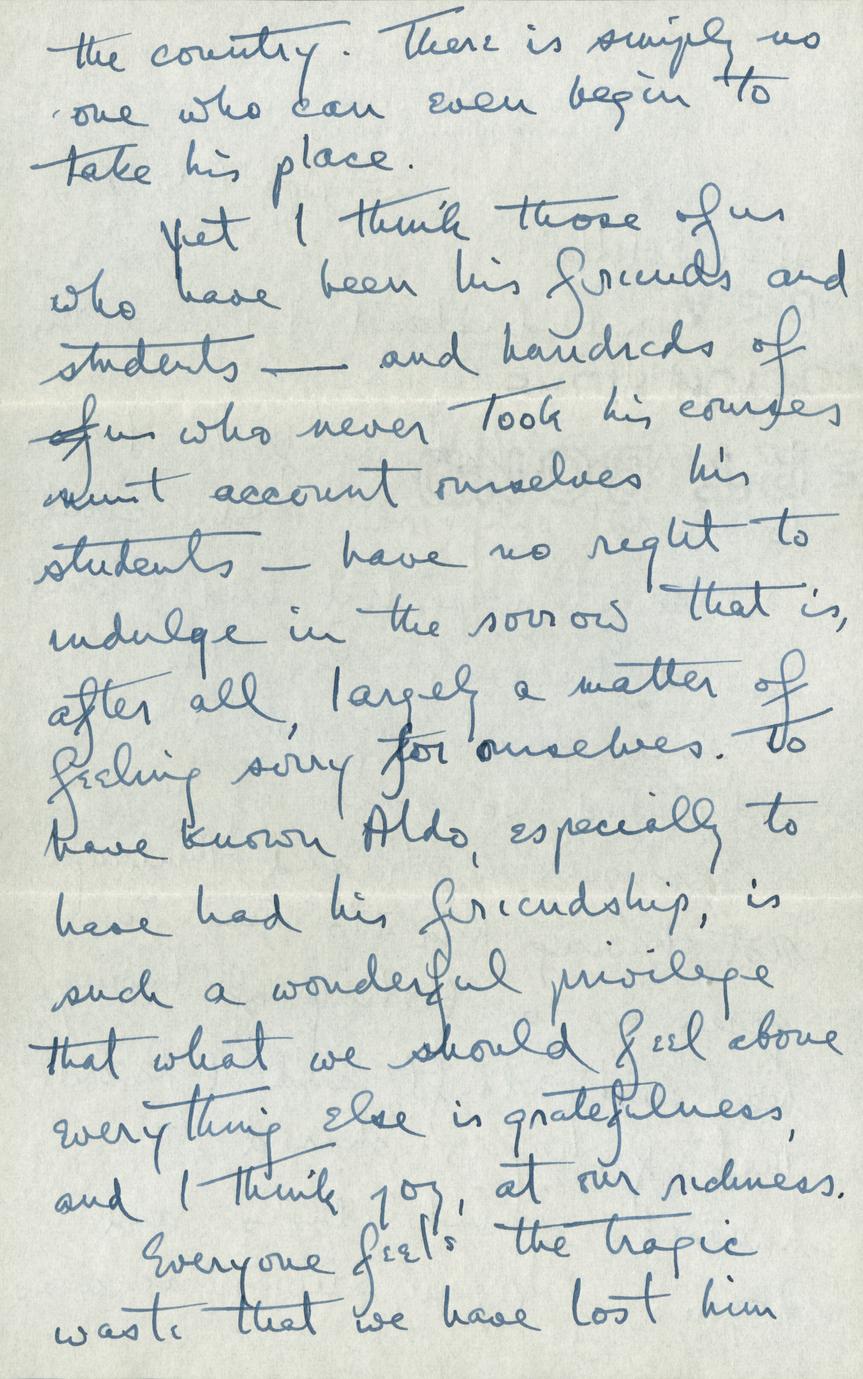 the country. There is simply no
one who can even begin to
take his place.
Yet I think those of us
who have been his friends and
students — and hundreds of
of us who never took his courses
must account ourselves his
students — have no right to
indulge in the sorrow that is,
after all, largely a matter of
feeling sorry for ourselves. To
have known Aldo, especially to
have had his friendship, is
such a wonderful privilege
that what we should feel above
everything else is gratefulness,
and I think joy, at our richness.
Everyone feels the tragic
waste that we have lost him